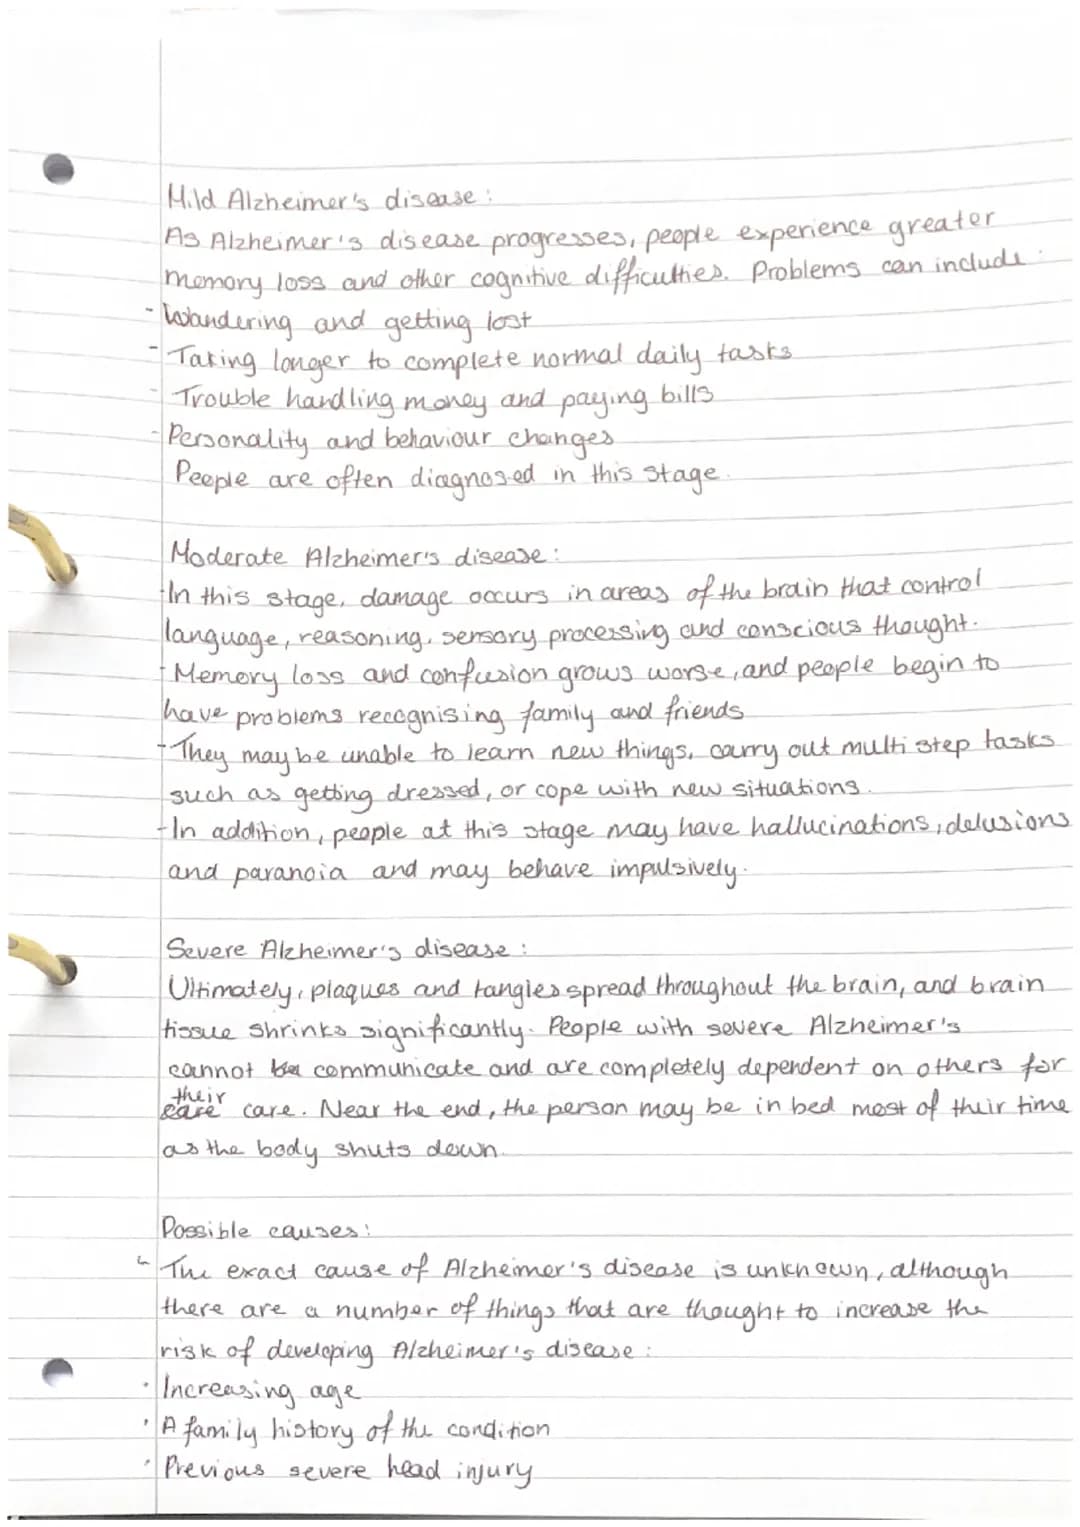 Mild Alzheimer's disease:
As Alzheimer's disease progresses, people experience greater
memory loss and other cognitive difficulties. Problems can include:
- Wandering and getting lost
- Taking longer to complete normal daily tasks
- Trouble handling money and paying bills
- Personality and behaviour changes
People are often diagnosed in this stage.
Moderate Alzheimer's disease:
- In this stage, damage occurs in areas of the brain that control
language, reasoning, sensory processing and conscious thought.
- Memory loss and confusion grows worse, and people begin to
have problems recognising family and friends
- They may be unable to learn new things, carry out multi step tasks
such as getting dressed, or cope with new situations.
- In addition, people at this stage may have hallucinations, delusions
and paranoia and may behave impulsively.
Severe Alzheimer's disease:
Ultimately, plaques and tangles spread throughout the brain, and brain
tissue shrinks significantly. People with severe Alzheimer's
cannot communicate and are completely dependent on others for
their care. Near the end, the person may be in bed most of their time
as the body shuts down.
Possible causes:
↳ The exact cause of Alzheimer's disease is unknown, although
there are a number of things that are thought to increase the
risk of developing Alzheimer's disease:
· Increasing age
· A family history of the condition
· Previous severe head injury